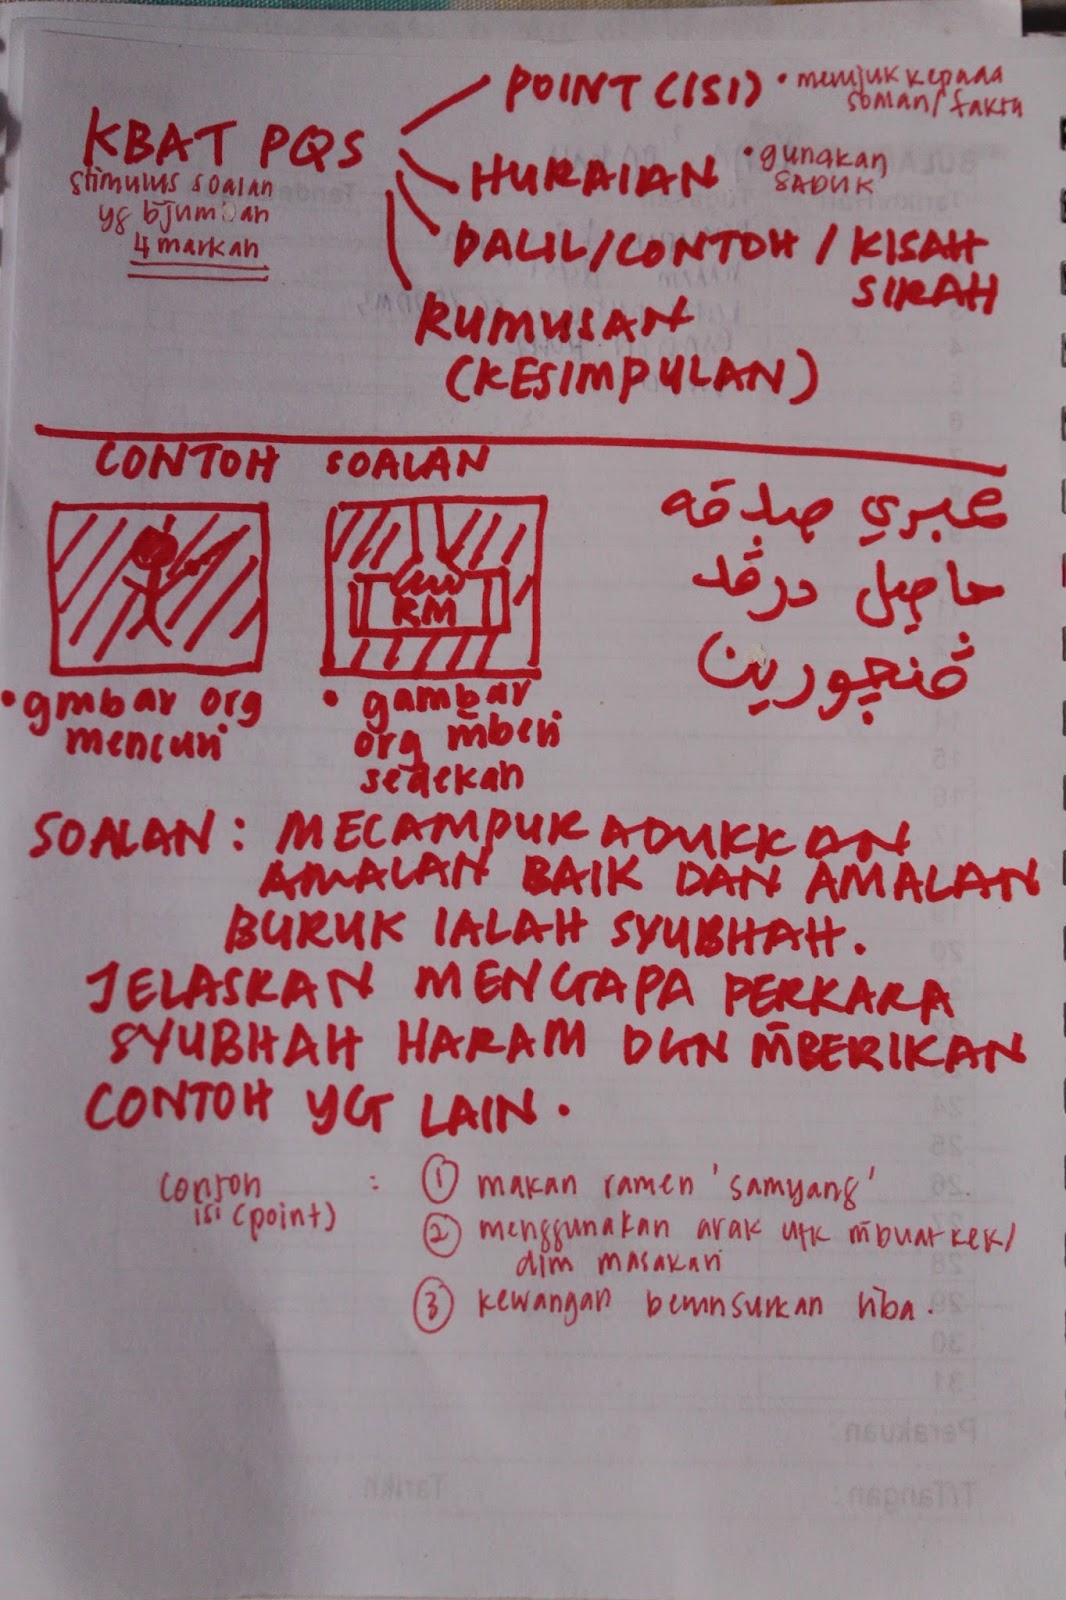 KBAT PQS
stimulus soalan
yg bjumlah
4 markah
POINT (ISI)
• merujuk kepada
soalan/fakta
HURAIAN
• gunakan
SADUK
DALIL/CONTOH / KISAH
SIRAH
RUMUSAN
(KESIMPULAN)
CONTOH SOALAN
RM
• gmbar org
mencuri
• gambar
org m̄beri
sedekah
صدقه
حاصيل درڤد
ڤنچورين
SOALAN : MECAMPURADUKKAN
AMALAN BAIK DAN AMALAN
BURUK IALAH SYUBHAH.
JELASKAN MENGAPA PERKARA
SYUBHAH HARAM DGN M̄BERIKAN
CONTOH YG LAIN.
contoh
isi (point)
:
① makan ramen 'samyang'
② menggunakan arak utk m̄buat kek/
dlm masakan
③ kewangan berunsurkan riba.
Perakuan:
T/Tangan:
Tarikh